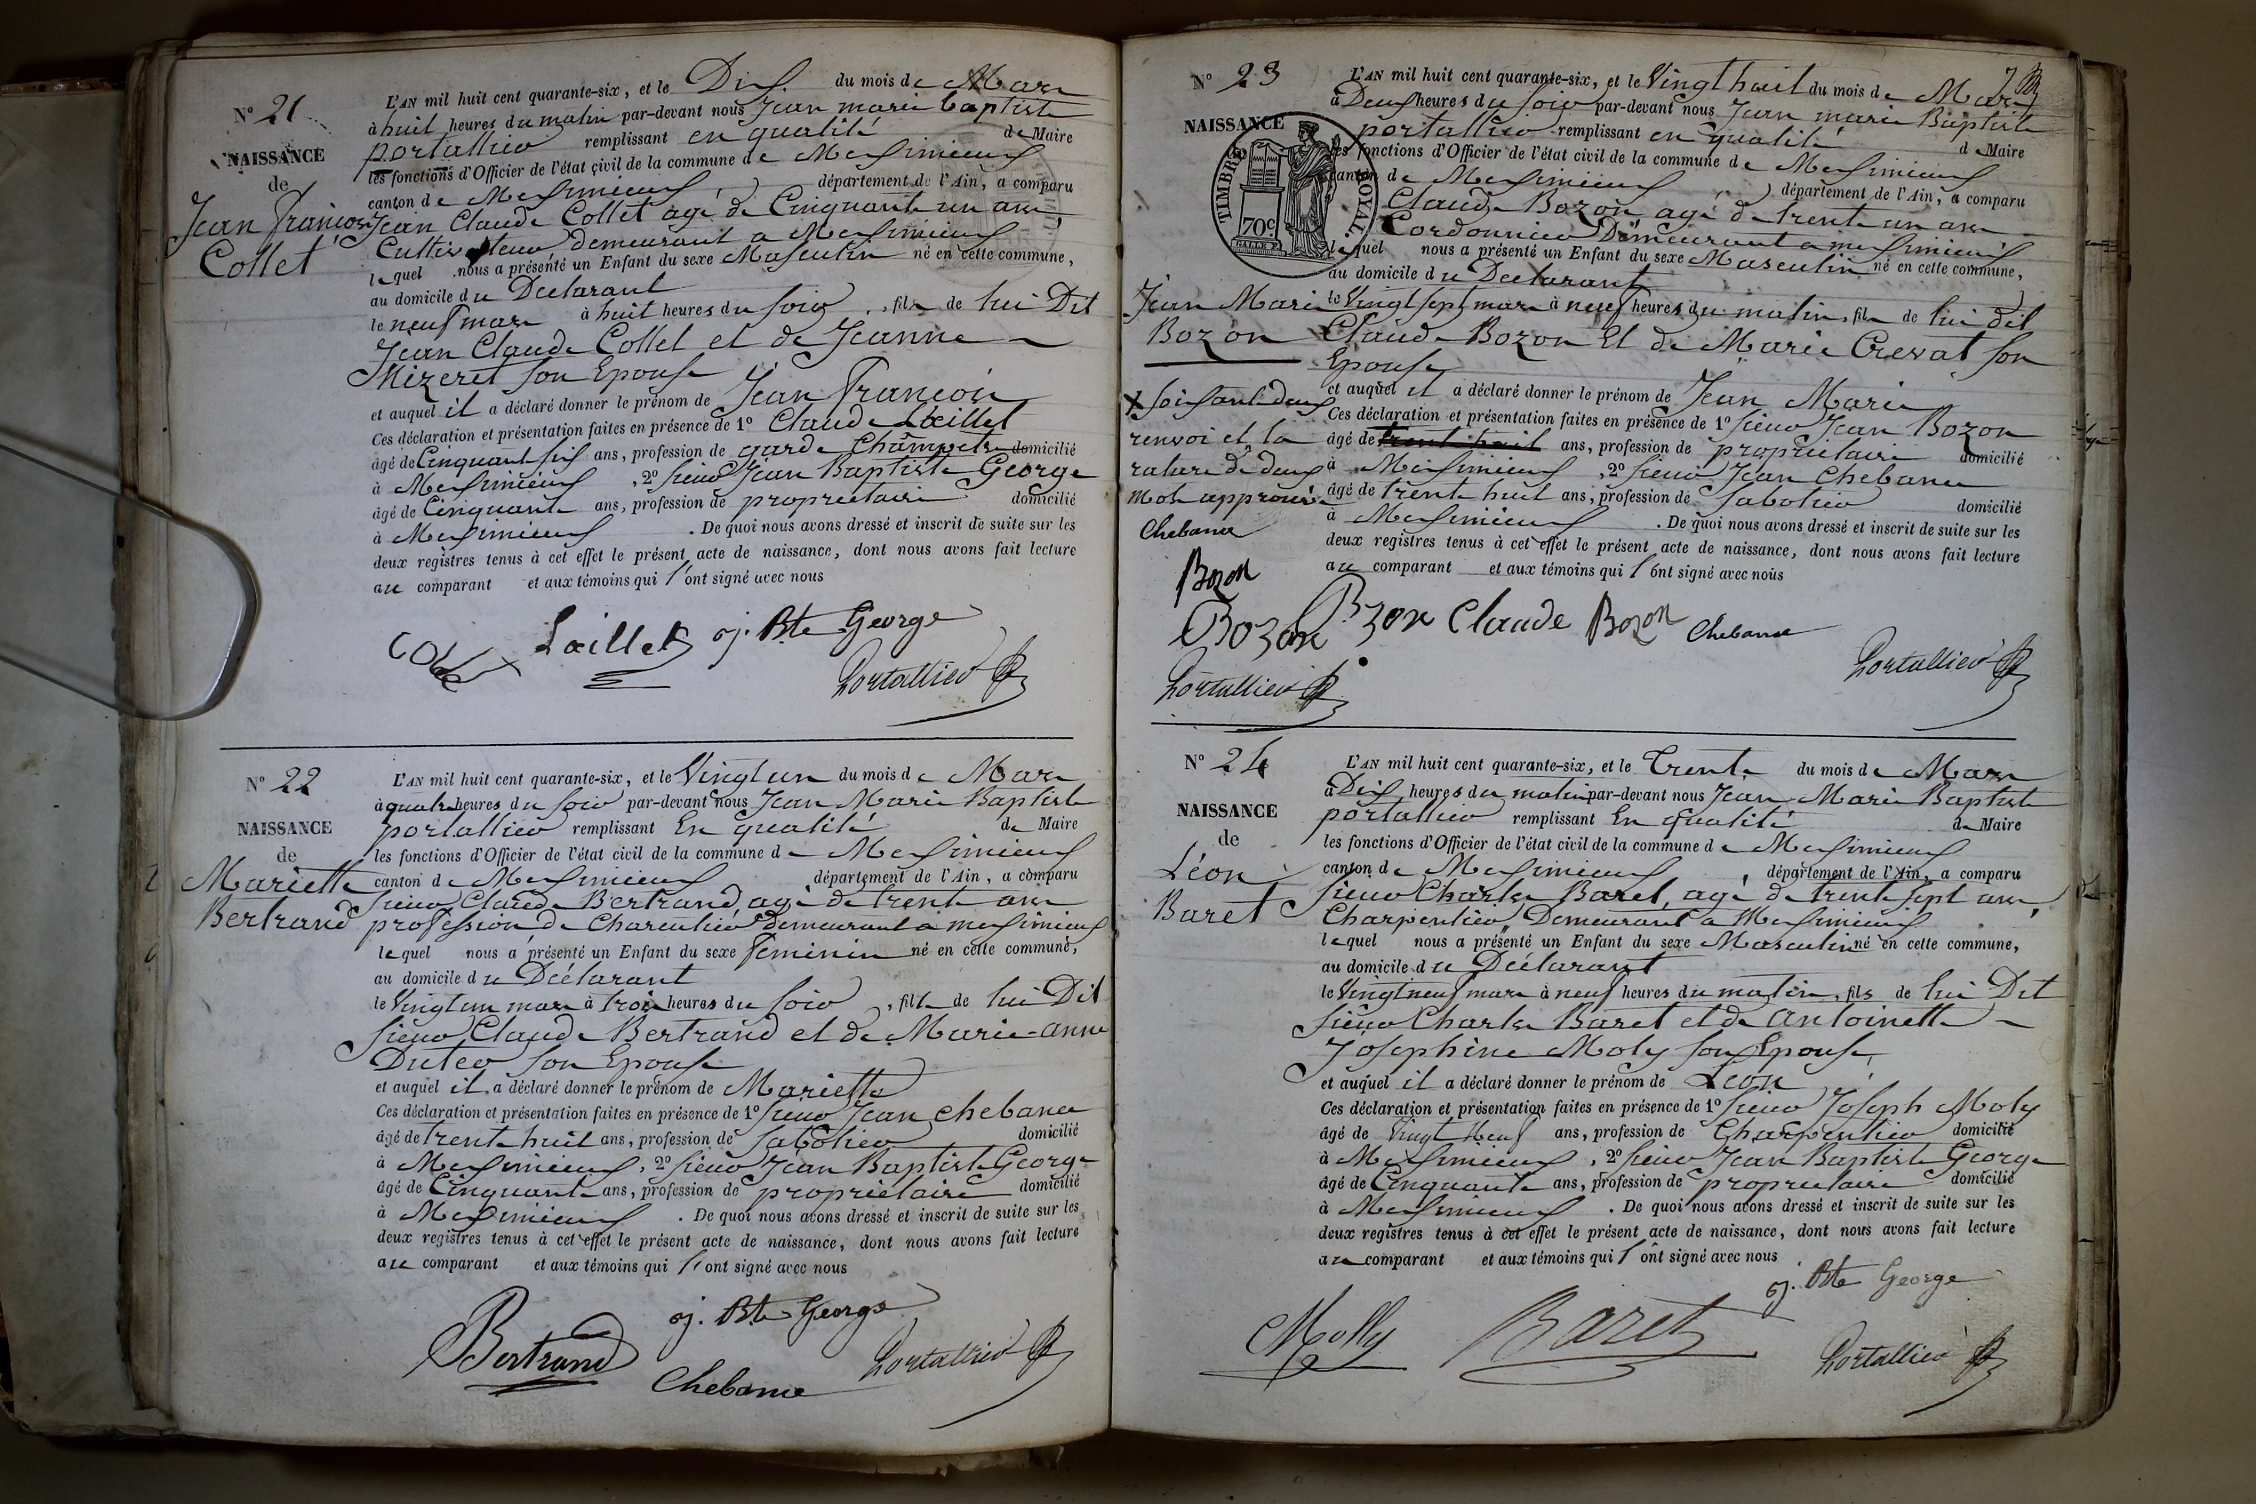 N° 21
NAISSANCE
de
Jean François
Collet
L'AN mil huit cent quarante-six, et le Dix du mois de Mars
à huit heures du matin par-devant nous Jean marie Baptiste
portallier remplissant en qualité de Maire
les fonctions d'Officier de l'état civil de la commune de Meximieux
canton de Meximieux département de l'Ain, a comparu
Jean Claude Collet agé de Cinquante un ans,
Cultivateur, demeurant a Meximieux
lequel nous a présenté un Enfant du sexe Masculin né en cette commune,
au domicile du Déclarant
le neuf mars à huit heures du soir, fils de lui Dit
Jean Claude Collet et de Jeanne
Mizeret son Epouse
et auquel il a déclaré donner le prénom de Jean François
Ces déclaration et présentation faites en présence de 1° Claude Loeillet
âgé de Cinquante six ans, profession de garde Champetre domicilié
à Meximieux, 2° sieur Jean Baptiste George
âgé de Cinquante ans, profession de propriétaire domicilié
à Meximieux. De quoi nous avons dressé et inscrit de suite sur les
deux registres tenus à cet effet le présent acte de naissance, dont nous avons fait lecture
au comparant et aux témoins qui l'ont signé avec nous
Collet Loillet j. Bte George
Portallier
N° 22
NAISSANCE
de
Mariette
Bertrand
L'AN mil huit cent quarante-six, et le Vingt un du mois de Mars
à quatre heures du soir par-devant nous Jean Marie Baptiste
portallier remplissant En qualité de Maire
les fonctions d'Officier de l'état civil de la commune de Meximieux
canton de Meximieux département de l'Ain, a comparu
sieur Claude Bertrand, agé de trente ans
profession de Charcutier demeurant a meximieux
lequel nous a présenté un Enfant du sexe feminin né en cette commune,
au domicile du Déclarant
le Vingt un mars à trois heures du soir, fille de lui Dit
sieur Claude Bertrand et de Marie-anne
Duter son Epouse
et auquel il a déclaré donner le prénom de Mariette
Ces déclaration et présentation faites en présence de 1° sieur Jean Chebance
âgé de trente huit ans, profession de Sabotier domicilié
à Meximieux, 2° sieur Jean Baptiste George
âgé de Cinquante ans, profession de propriétaire domicilié
à Meximieux. De quoi nous avons dressé et inscrit de suite sur les
deux registres tenus à cet effet le présent acte de naissance, dont nous avons fait lecture
au comparant et aux témoins qui l'ont signé avec nous
Bertrand j. Bte George
Chebance Portallier
7
N° 23
NAISSANCE
TIMBRE ROYAL
70c
Jean Marie
Bozon
L'AN mil huit cent quarante-six, et le Vingt huit du mois de Mars
à Deux heures du soir par-devant nous Jean marie Baptiste
portallier remplissant en qualité de Maire
les fonctions d'Officier de l'état civil de la commune de Meximieux
canton de Meximieux département de l'Ain, a comparu
Claude Bozon, agé de trente un ans
Cordonnier Demeurant a meximieux
lequel nous a présenté un Enfant du sexe Masculin né en cette commune,
au domicile du Déclarant
le Vingt sept mars à neuf heures du matin, fils de lui dit
Claude Bozon Et de Marie Crevat son
Epouse
et auquel il a déclaré donner le prénom de Jean Marie
Ces déclaration et présentation faites en présence de 1° sieur Jean Bozon
âgé de trente huit ans, profession de propriétaire domicilié
à Meximieux, 2° sieur Jean Chebance
âgé de trente huit ans, profession de Sabotier domicilié
à Meximieux. De quoi nous avons dressé et inscrit de suite sur les
deux registres tenus à cet effet le présent acte de naissance, dont nous avons fait lecture
au comparant et aux témoins qui l'ont signé avec nous
X soixante deux
renvoi et la
rature de deux
mots approuvé
Chebance
Bozon
Bozon Bozon Claude Bozon Chebance
Portallier Portallier
N° 24
NAISSANCE
de
Léon
Baret
L'AN mil huit cent quarante-six, et le Trente du mois de Mars
à Dix heures du matin par-devant nous Jean Marie Baptiste
portallier remplissant En qualité de Maire
les fonctions d'Officier de l'état civil de la commune de Meximieux
canton de Meximieux, département de l'Ain, a comparu
sieur Charles Baret, agé de trente sept ans,
Charpentier, Demeurant a Meximieux
lequel nous a présenté un Enfant du sexe Masculin né en cette commune,
au domicile du Déclarant
le Vingt neuf mars à neuf heures du matin, fils de lui Dit
sieur Charles Baret et de antoinette
Josephine Moly son Epouse
et auquel il a déclaré donner le prénom de Léon
Ces déclaration et présentation faites en présence de 1° sieur Joseph Moly
âgé de Vingt Neuf ans, profession de Charpentier domicilié
à Meximieux, 2° sieur Jean Baptiste George
âgé de Cinquante ans, profession de propriétaire domicilié
à Meximieux. De quoi nous avons dressé et inscrit de suite sur les
deux registres tenus à cet effet le présent acte de naissance, dont nous avons fait lecture
au comparant et aux témoins qui l'ont signé avec nous
j. Bte George
Molly Baret
Portallier